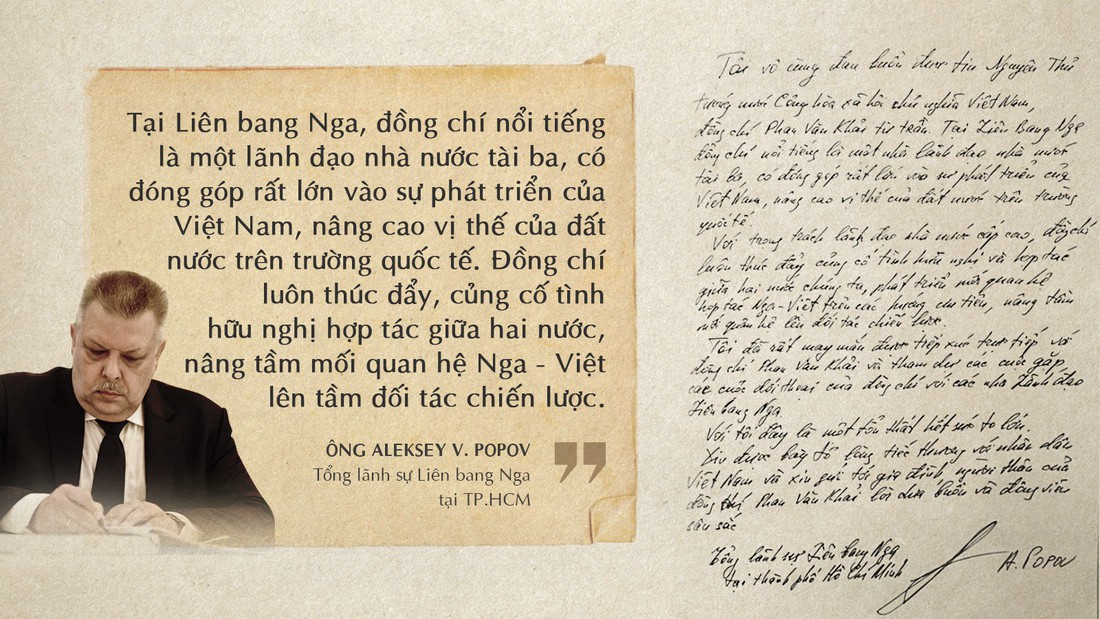 Tại Liên bang Nga, đồng chí nổi tiếng
là một lãnh đạo nhà nước tài ba, có
đóng góp rất lớn vào sự phát triển của
Việt Nam, nâng cao vị thế của đất
nước trên trường quốc tế. Đồng chí
luôn thúc đẩy, củng cố tình
hữu nghị hợp tác giữa hai nước,
nâng tầm mối quan hệ Nga - Việt
lên tầm đối tác chiến lược.
ÔNG ALEKSEY V. POPOV
Tổng lãnh sự Liên bang Nga
tại TP.HCM
Tôi vô cùng đau buồn được tin Nguyên Thủ
tướng nước Cộng hòa xã hội chủ nghĩa Việt Nam,
đồng chí Phan Văn Khải từ trần. Tại Liên Bang Nga
đồng chí nổi tiếng là một nhà lãnh đạo nhà nước
tài ba, có đóng góp rất lớn vào sự phát triển của
Việt Nam, nâng cao vị thế của đất nước trên trường
quốc tế.
Với trọng trách lãnh đạo nhà nước cấp cao, đồng chí
luôn thúc đẩy củng cố tình hữu nghị và hợp tác
giữa hai nước chúng ta, phát triển mối quan hệ
hợp tác Nga-Việt trên các hướng ưu tiên, nâng tầm
mối quan hệ lên đối tác chiến lược.
Tôi đã rất may mắn được tiếp xúc trực tiếp với
đồng chí Phan Văn Khải và tham dự các cuộc gặp,
các cuộc đối thoại của đồng chí với các nhà lãnh đạo
Liên bang Nga.
Với tôi đây là một tổn thất hết sức to lớn.
Xin được bày tỏ lòng tiếc thương với nhân dân
Việt Nam và xin gửi tới gia đình người thân của
đồng chí Phan Văn Khải lời chia buồn và động viên
sâu sắc
Tổng lãnh sự Liên bang Nga
tại thành phố Hồ Chí Minh
A. POPOV